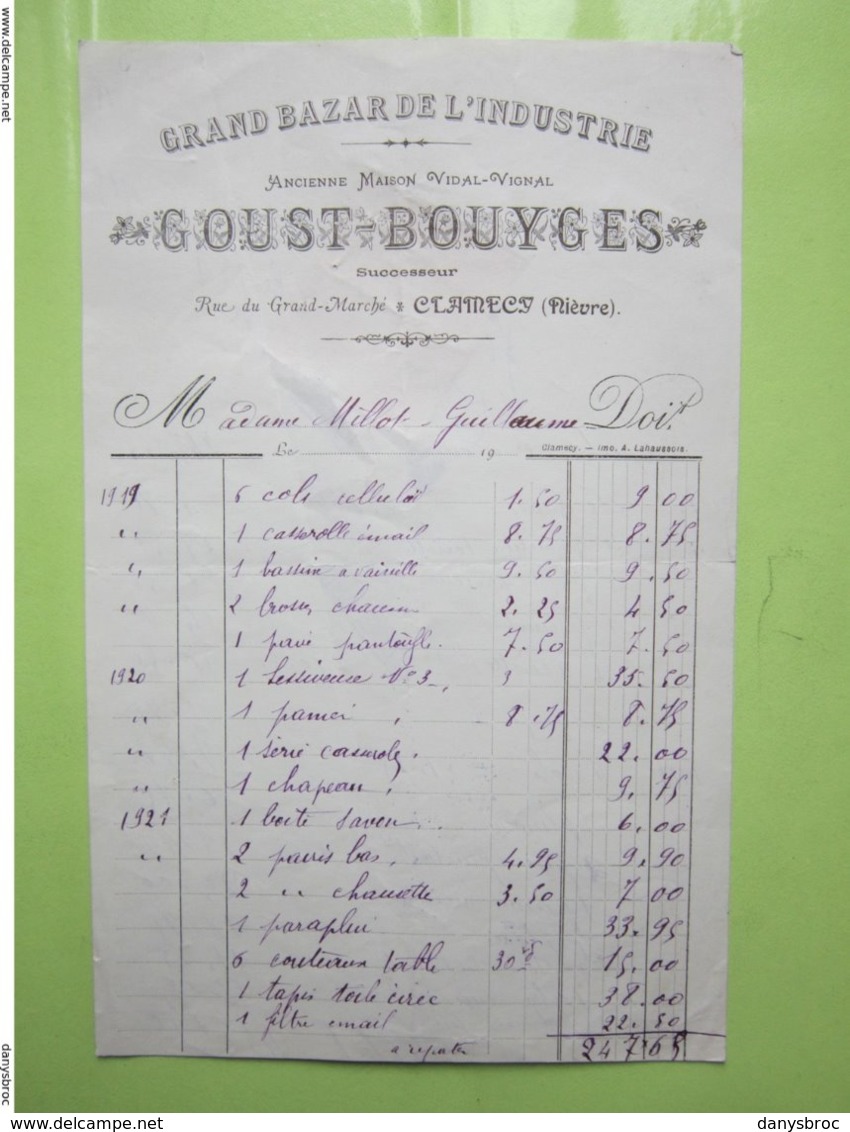 GRAND BAZAR DE L'INDUSTRIE
ANCIENNE MAISON VIDAL-VIGNAL
GOUST-BOUYGES
Successeur
Rue du Grand-Marché * CLAMECY (Nièvre).
Madame Millot-Guillaume Doit
Le 19
Clamecy. — Imp. A. Lahaussois.
1919 6 cols celluloï 1.50 9 00
" 1 casserolle émail 8.75 8.75
" 1 bassine a vaisselle 9.50 9.50
" 2 brosses 2.25 4 50
1 paire pantoufle. 7.50 7.50
1920 1 Lessiveuse No 3 35.50
" 1 panier 8.75 8.75
" 1 serie casserole. 22.00
" 1 chapeau 9.75
1921 1 boite savon 6.00
" 2 paires bas. 4.95 9.90
2 " chaussette 3.50 7 00
1 parapluie 33.95
6 couteaux table 15.00
1 tapis toile cirée 38.00
1 filtre email 22.50
a reporter 247.65
www.delcampe.net
www.delcampe.net
danysbroc
danysbroc
www.delcampe.net
danysbroc